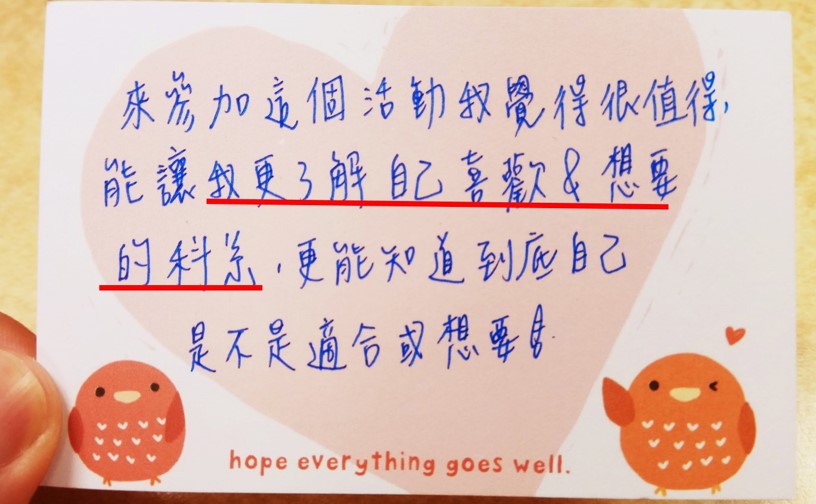 來參加這個活動我覺得很值得,
能讓我更了解自己喜歡&想要
的科系,更能知道到底自己
是不是適合或想要!
hope everything goes well.